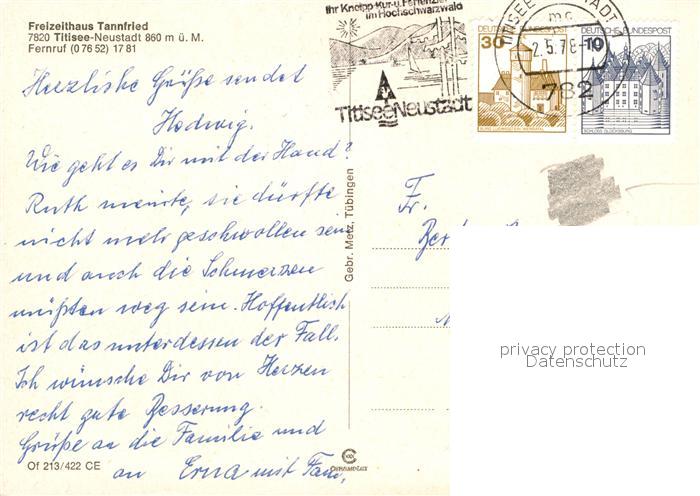 Freizeithaus Tannfried
7820 Titisee-Neustadt 860 m ü. M.
Fernruf (0 76 52) 17 81
Herzliche Grüße sendet
Hedwig.
Wie geht es Dir mit der Hand?
Ruth meinte, sie dürfte
nicht mehr geschwollen sein
und auch die Schmerzen
müßten weg sein. Hoffentlich
ist das unterdessen der Fall.
Ich wünsche Dir von Herzen
recht gute Besserung.
Grüße an die Familie und
an Erna mit Fam.
Of 213/422 CE
Gebr. Metz, Tübingen
Ihr Kneipp-Kur-u. Ferienziel
im Hochschwarzwald
Titisee-Neustadt
TITISEE-NEUSTADT
mc
2.5.78
782
DEUTSCHE BUNDESPOST
30
BURG LUDWIGSTEIN WERRATAL
DEUTSCHE BUNDESPOST
10
SCHLOSS GLÜCKSBURG
Fr.
privacy protection
Datenschutz